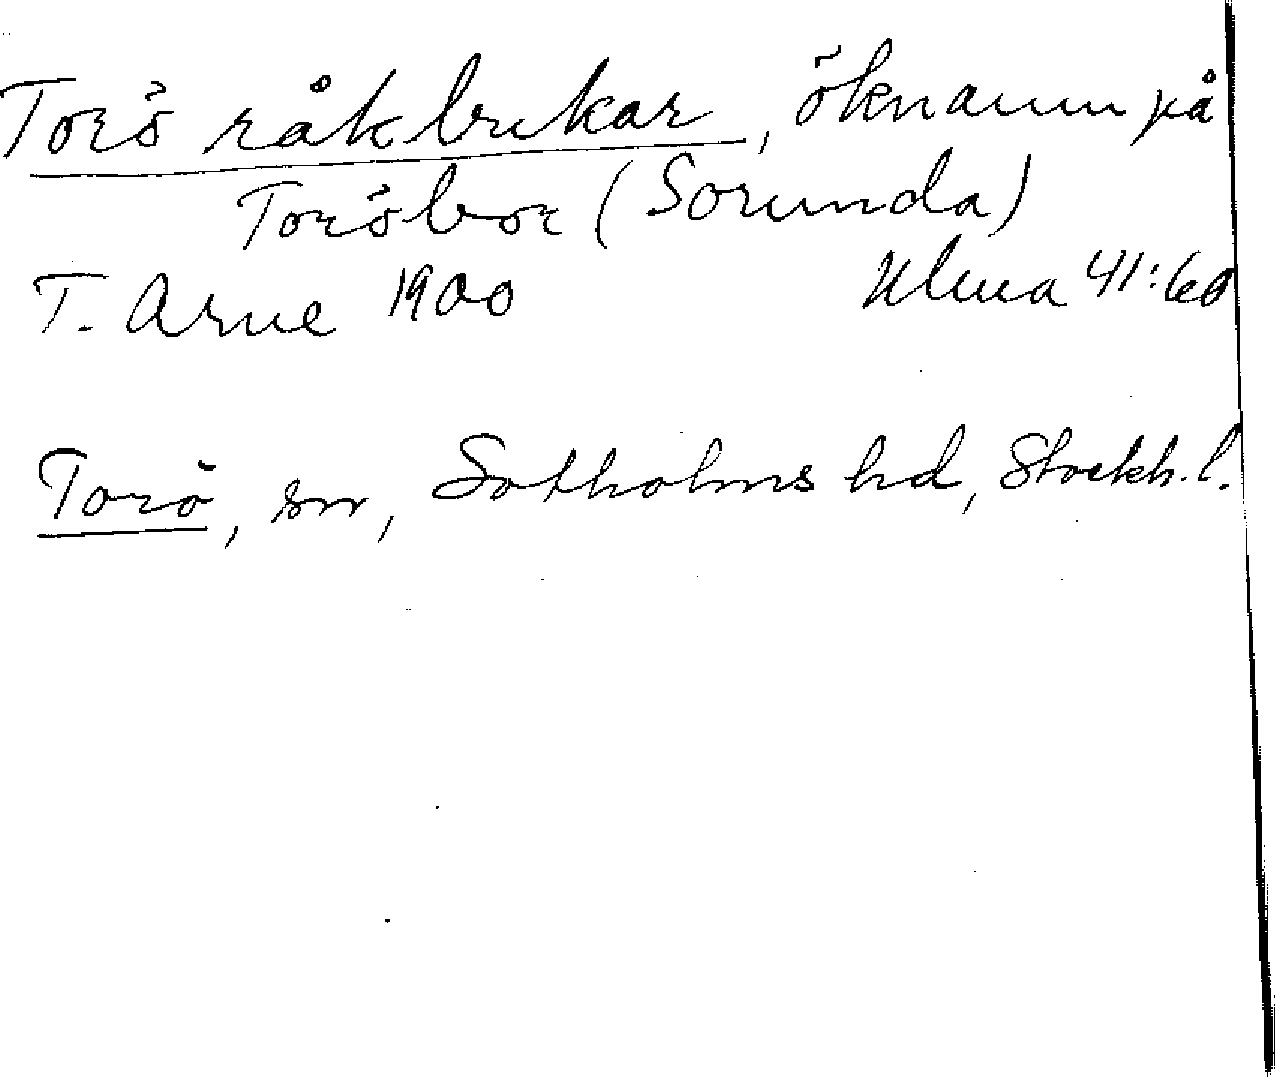 Torö råkbukar, öknamn på
Toröbor (Sorunda)
T. Arne 1900 Ulma 41:60
Torö, sn, Sotholms hd, Stockh. l.